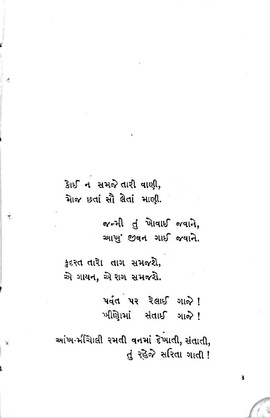 કોઈ ન સમજે તારી વાણી,
મોજ છતાં સૌ લેતાં માણી.
જન્મી તું ખોવાઈ જવાને,
આખું જીવન ગાઈ જવાને.
કુદરત તારા તાગ સમજશે,
એ ગાયન, એ રાગ સમજશે.
પર્વત પર રેલાઈ ગાજે !
ખીણોમાં સંતાઈ ગાજે !
આંખ-મીંચોલી રમતી વનમાં દેખાતી, સંતાતી,
તું રહેજે સરિતા ગાતી !
૩